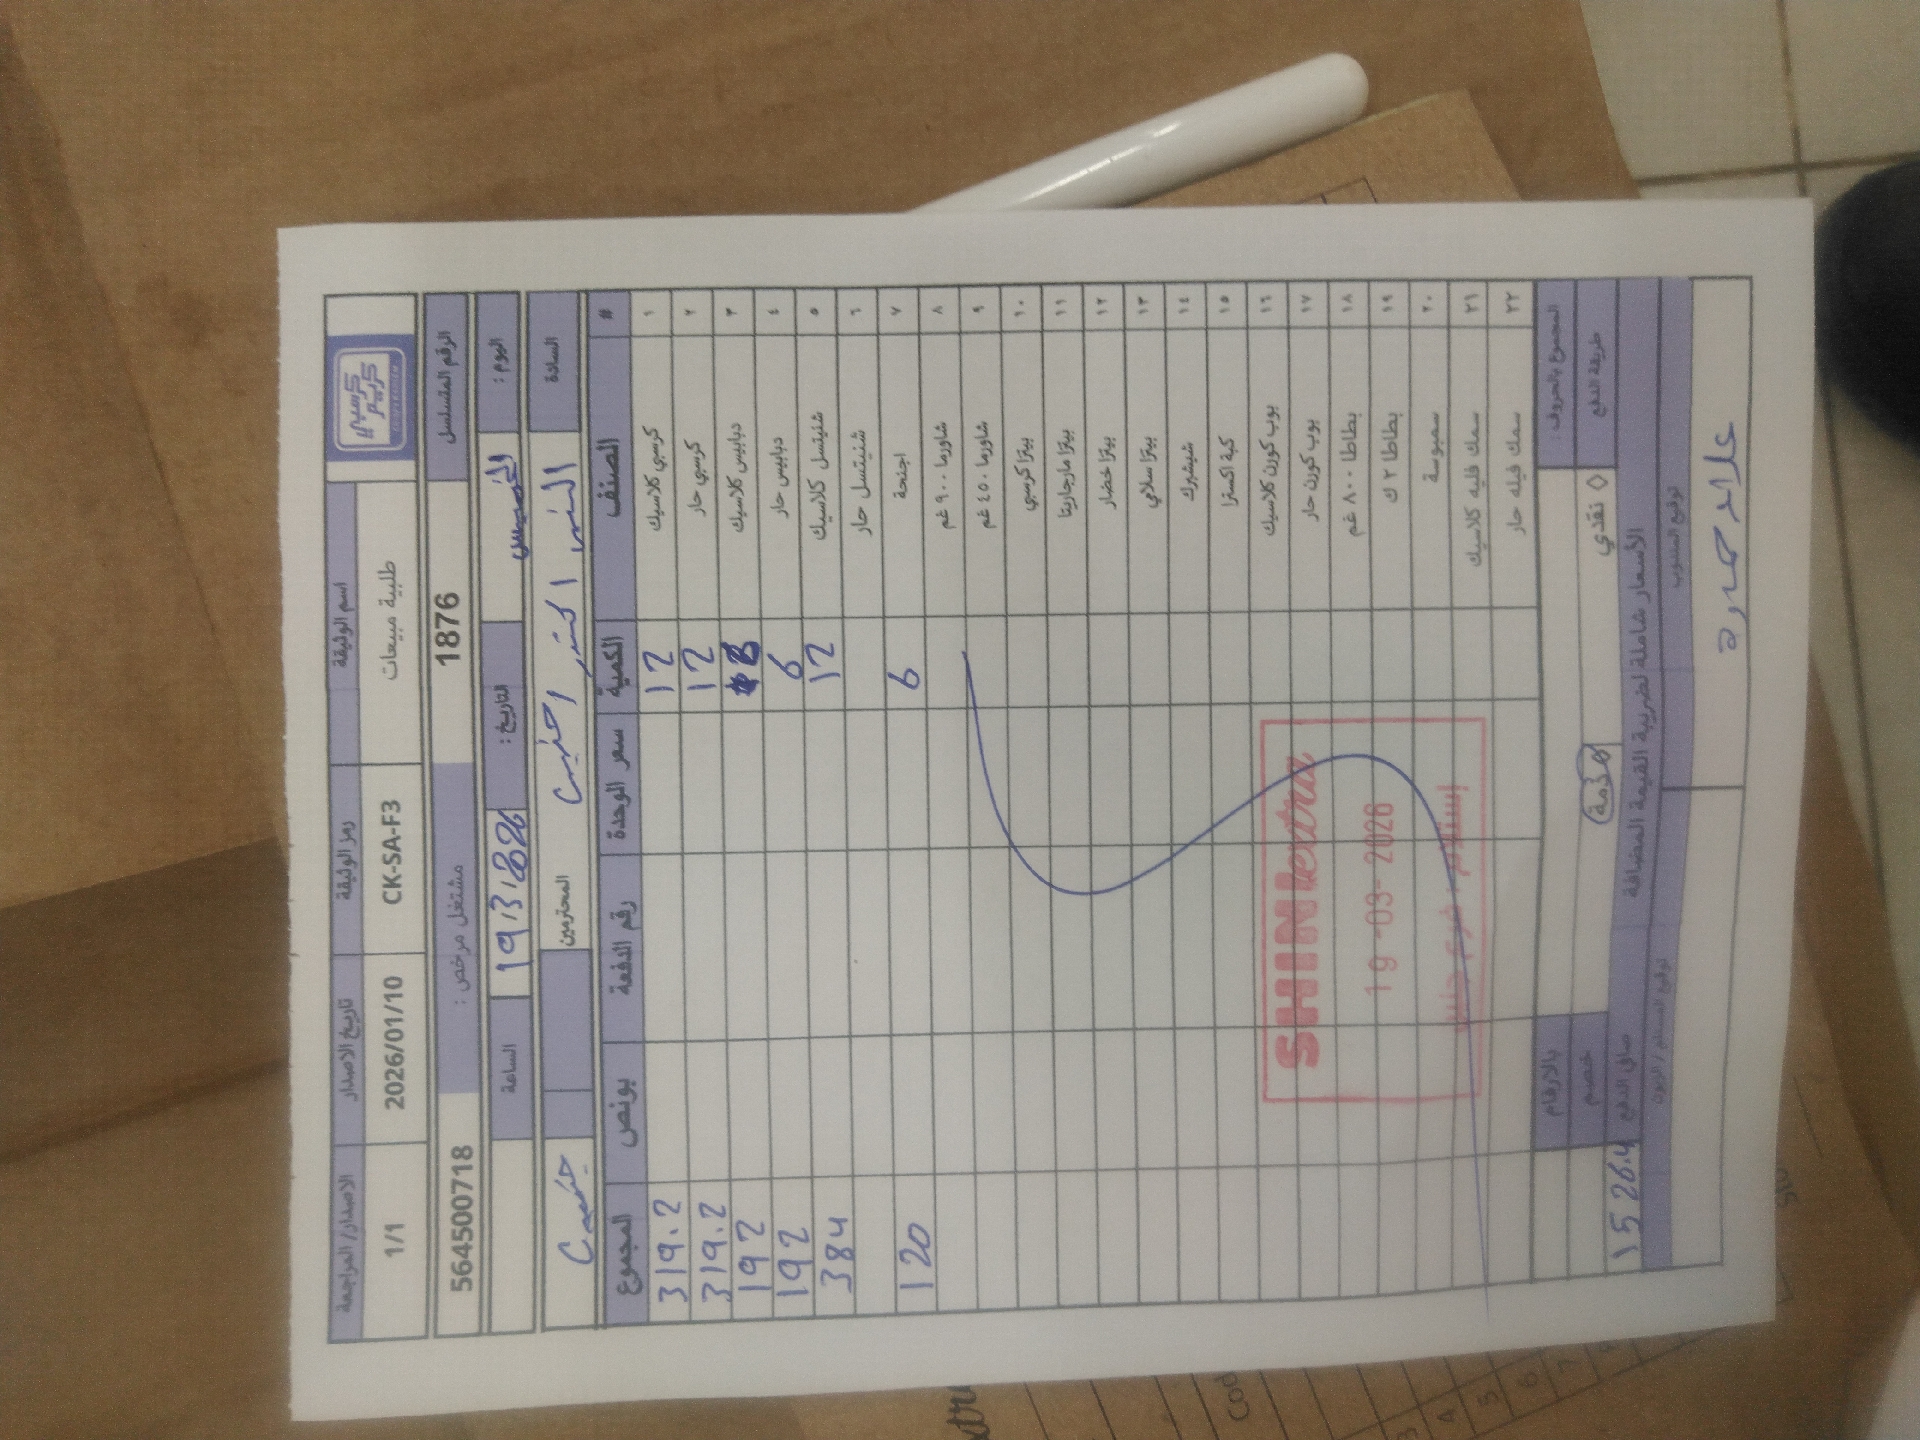 كرسبي كريم
اسم الوثيقة رمز الوثيقة تاريخ الاصدار الاصدار/ المراجعة
طلبية مبيعات CK-SA-F3 2026/01/10 1/1
الرقم المتسلسل 1876 مشتغل مرخص : 564500718
اليوم : الخميس التاريخ : الساعة
السادة المحترمين
# الصنف الكمية سعر الوحدة رقم الدفعة بونص المجموع
١ كرسبي كلاسيك 12 319.2
٢ كرسبي حار 12 319.2
٣ دبابيس كلاسيك 192
٤ دبابيس حار 6 192
٥ شنيتسل كلاسيك 12 384
٦ شنيتسل حار
٧ اجنحة 6 120
٨ شاورما ٩٠٠ غم
٩ شاورما ٤٥٠ غم
١٠ بيتزا كرسبي
١١ بيتزا مارجاريتا
١٢ بيتزا خضار
١٣ بيتزا سلامي
١٤ شيشبرك
١٥ كبة اكسترا
١٦ بوب كورن كلاسيك
١٧ بوب كورن حار
١٨ بطاطا ٨٠٠ غم
١٩ بطاطا ٢ ك
٢٠ سمبوسة
٢١ سمك فليه كلاسيك
٢٢ سمك فيله حار
SHINI extra
19-03-2026
المجموع بالحروف : بالارقام
طريقة الدفع ◊ نقدي ذمة خصم
الأسعار شاملة لضريبة القيمة المضافة صافي الدفع 1526.4
توقيع المندوب توقيع المستلم / الزبون